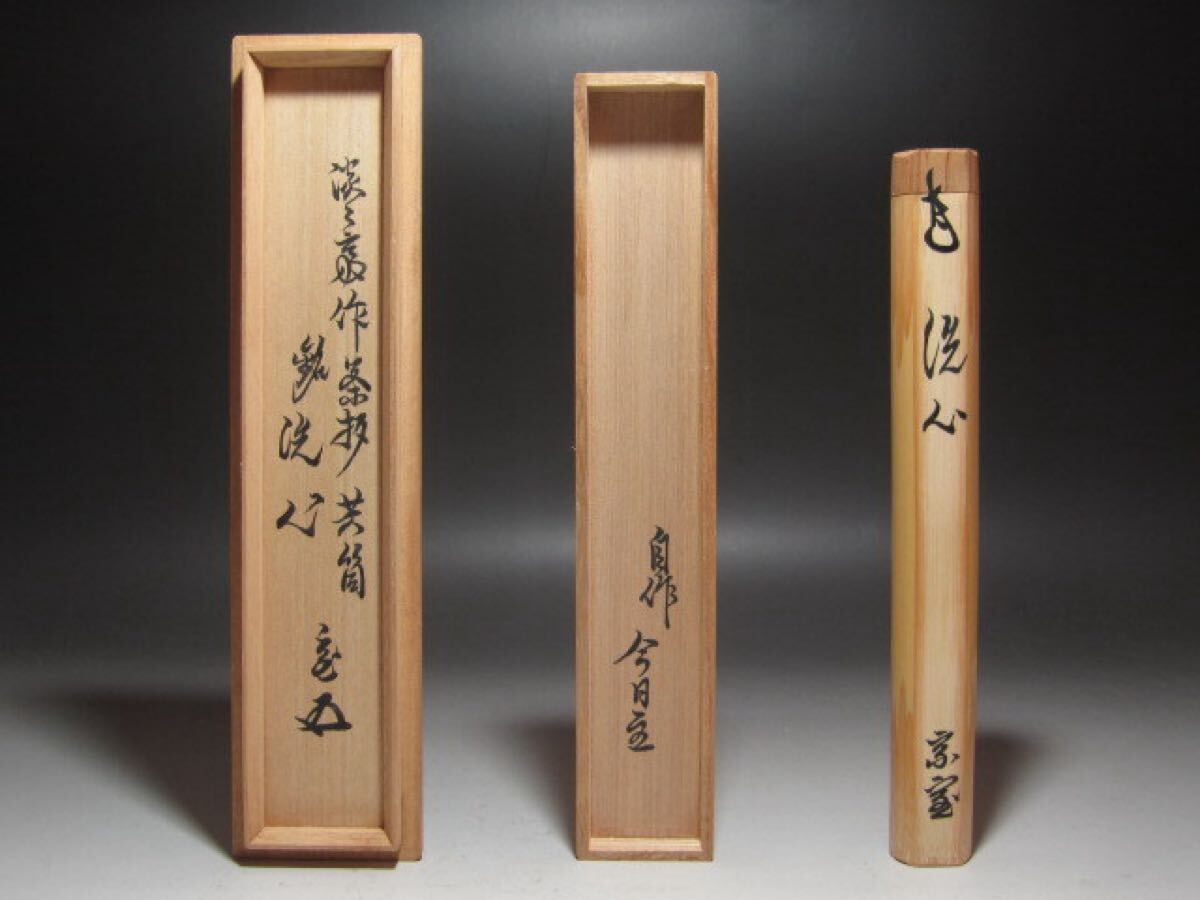 淡々斎作茶杓共筒
銘洗心
室
自作
今日主
洗心
宗室